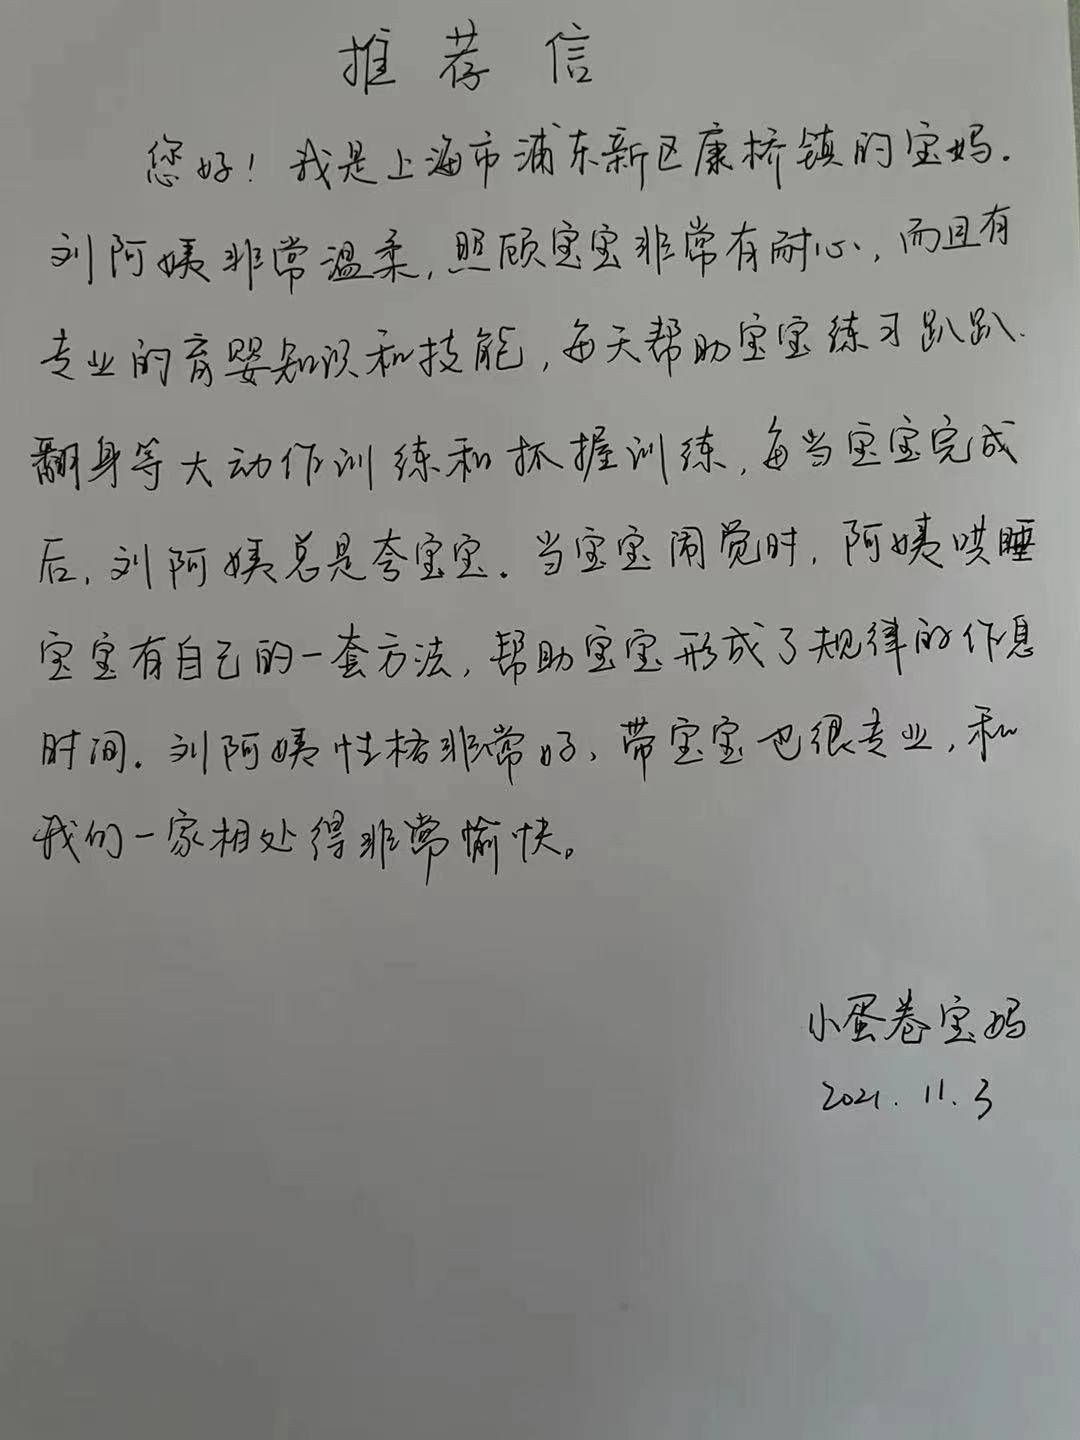 推荐信
您好！我是上海市浦东新区康桥镇的宝妈.
刘阿姨非常温柔,照顾宝宝非常有耐心,而且有
专业的育婴知识和技能,每天帮助宝宝练习趴趴、
翻身等大动作训练和抓握训练,每当宝宝完成
后,刘阿姨总是夸宝宝.当宝宝闹觉时,阿姨哄睡
宝宝有自己的一套方法,帮助宝宝形成了规律的作息
时间.刘阿姨性格非常好,带宝宝也很专业,和
我们一家相处得非常愉快。
小蛋卷宝妈
2021.11.3